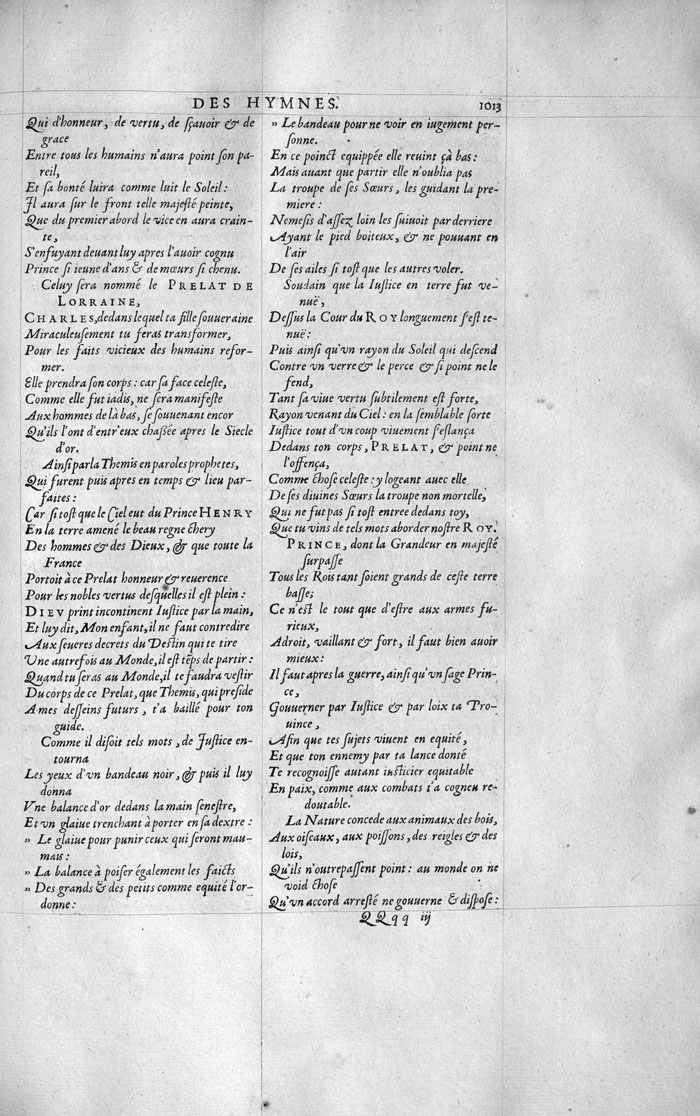 DES HYMNES.
1013
Qui d'honneur, de vertu, de sçauoir & de
grace
Entre tous les humains n'aura point son pa-
reil,
Et sa bonté luira comme luit le Soleil:
Il aura sur le front telle majesté peinte,
Que du premier abord le vice en aura crain-
te,
S'enfuyant deuant luy apres l'auoir cognu
Prince si ieune d'ans & de mœurs si chenu.
Celuy sera nommé le PRELAT DE
LORRAINE,
CHARLES, dedans lequel ta fille souueraine
Miraculeusement tu feras transformer,
Pour les faits vicieux des humains refor-
mer.
Elle prendra son corps: car sa face celeste,
Comme elle fut iadis, ne sera manifeste
Aux hommes de là bas, se souuenant encor
Qu'ils l'ont d'entr'eux chaßée apres le Siecle
d'or.
Ainsi parla Themis en paroles prophetes,
Qui furent puis apres en temps & lieu par-
faites:
Car si tost que le Ciel eut du Prince HENRY
En la terre amené le beau regne chery
Des hommes & des Dieux, & que toute la
France
Portoit à ce Prelat honneur & reuerence
Pour les nobles vertus desquelles il est plein:
DIEV print incontinent Iustice par la main,
Et luy dit, Mon enfant, il ne faut contredire
Aux seueres decrets du Destin qui te tire
Vne autrefois au Monde, il est tēps de partir:
Quand tu seras au Monde, il te faudra vestir
Du corps de ce Prelat, que Themis, qui preside
A mes desseins futurs, t'a baillé pour ton
guide.
Comme il disoit tels mots, de Iustice en-
tourna
Les yeux d'vn bandeau noir, & puis il luy
donna
Vne balance d'or dedans la main senestre,
Et vn glaiue trenchant à porter en sa dextre:
» Le glaiue pour punir ceux qui seront mau-
mais:
» La balance à poiser également les faicts
» Des grands & des petits comme equité l'or-
donne:
» Le bandeau pour ne voir en iugement per-
sonne.
En ce poinct equippée elle reuint çà bas:
Mais auant que partir elle n'oublia pas
La troupe de ses Sœurs, les guidant la pre-
miere:
Nemesis d'assez loin les suiuoit par derriere
Ayant le pied boiteux, & ne pouuant en
l'air
De ses ailes si tost que les autres voler.
Soudain que la Iustice en terre fut ve-
nuë,
Dessus la Cour du ROY longuement s'est te-
nuë:
Puis ainsi qu'vn rayon du Soleil qui descend
Contre vn verre & le perce & si point ne le
fend,
Tant sa viue vertu subtilement est forte,
Rayon venant du Ciel: en la semblable sorte
Iustice tout d'vn coup viuement s'eslança
Dedans ton corps, PRELAT, & point ne
l'offença,
Comme chose celeste: y logeant auec elle
De ses diuines Sœurs la troupe non mortelle,
Qui ne fut pas si tost entree dedans toy,
Que tu vins de tels mots aborder nostre ROY.
PRINCE, dont la Grandeur en majesté
surpasse
Tous les Rois tant soient grands de ceste terre
basse;
Ce n'est le tout que d'estre aux armes fu-
rieux,
Adroit, vaillant & fort, il faut bien auoir
mieux:
Il faut apres la guerre, ainsi qu'vn sage Prin-
ce,
Gouuerner par Iustice & par loix ta Pro-
uince,
Afin que tes sujets viuent en equité,
Et que ton ennemy par ta lance donté
Te recognoisse autant iusticier equitable
En paix, comme aux combats t'a cogneu re-
doutable.
La Nature concede aux animaux des bois,
Aux oiseaux, aux poissons, des reigles & des
lois,
Qu'ils n'outrepassent point: au monde on ne
void chose
Qu'vn accord arresté ne gouuerne & dispose:
QQqq iij